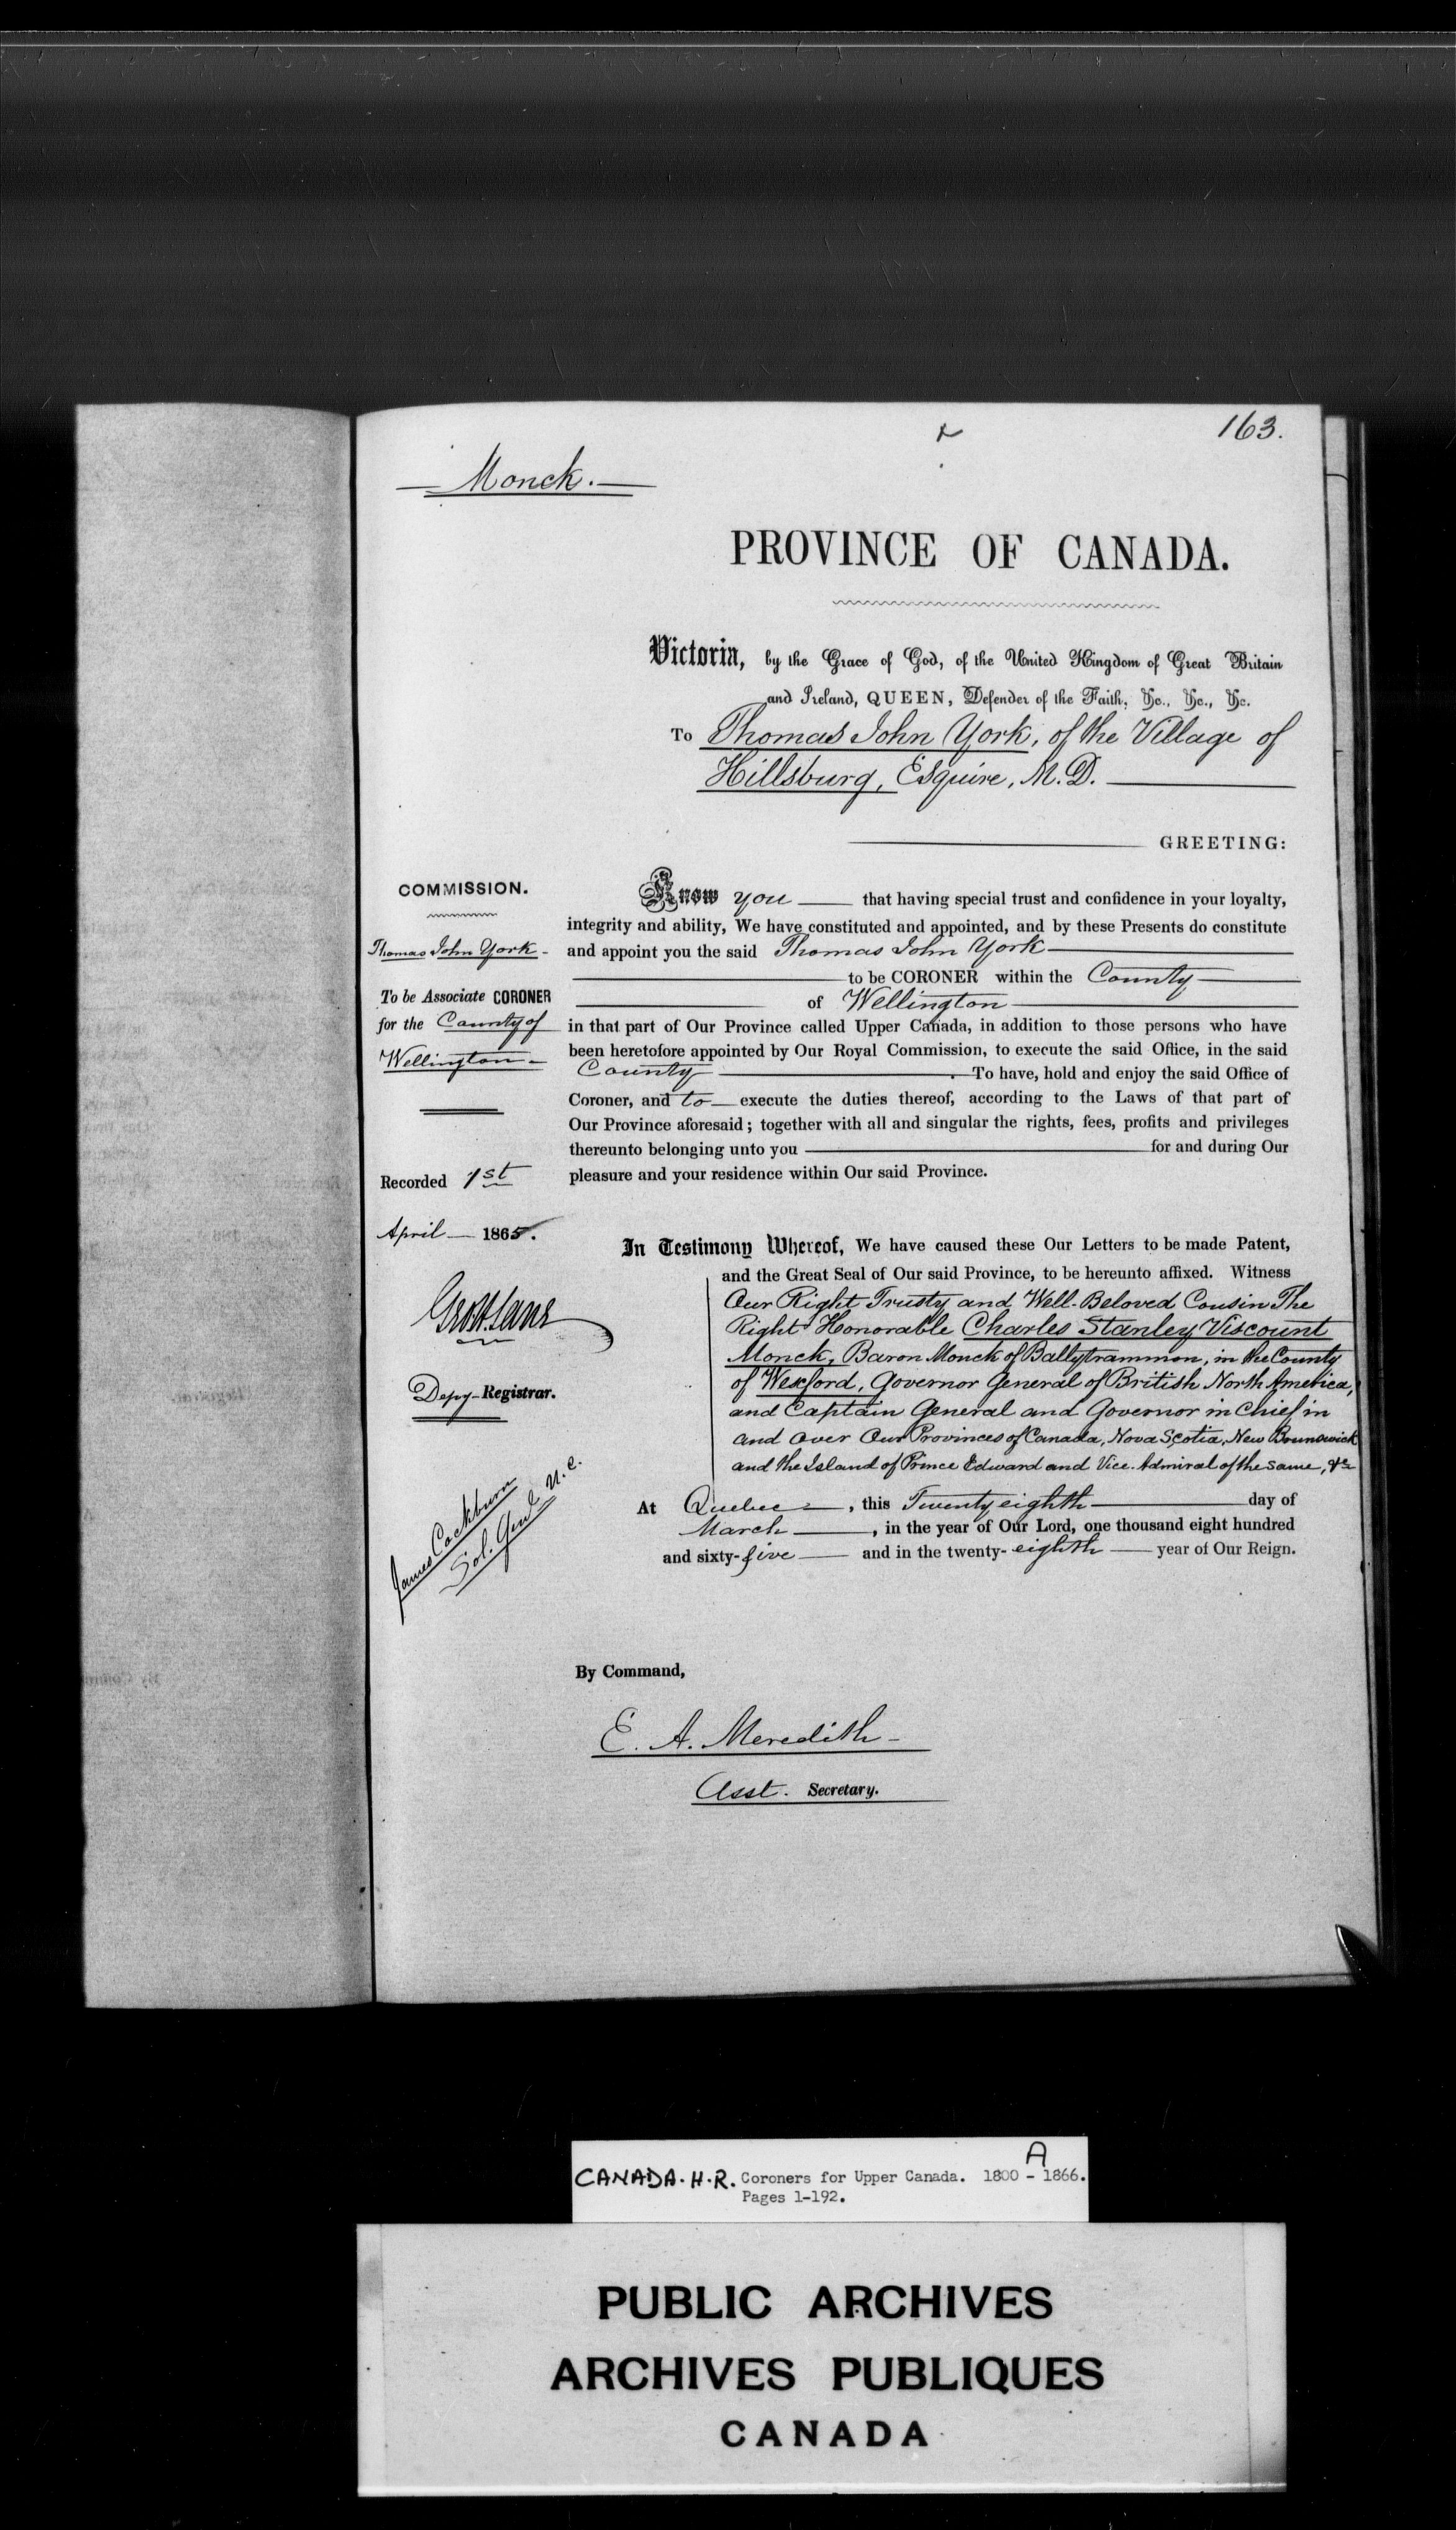 163.
Monck.
PROVINCE OF CANADA.
Victoria, by the Grace of God, of the United Kingdom of Great Britain
and Ireland, QUEEN, Defender of the Faith, &c., &c., &c.
To Thomas John York, of the Village of
Hillsburg, Esquire, M.D.
GREETING:
COMMISSION.
Thomas John York
To be Associate CORONER
for the County of
Wellington
Recorded 1st
April 1865.
Depy-Registrar.
James Cockburn
Sol. Genl. U.C.
Know you that having special trust and confidence in your loyalty,
integrity and ability, We have constituted and appointed, and by these Presents do constitute
and appoint you the said Thomas John York
to be CORONER within the County
of Wellington
in that part of Our Province called Upper Canada, in addition to those persons who have
been heretofore appointed by Our Royal Commission, to execute the said Office, in the said
County . To have, hold and enjoy the said Office of
Coroner, and to execute the duties thereof, according to the Laws of that part of
Our Province aforesaid; together with all and singular the rights, fees, profits and privileges
thereunto belonging unto you for and during Our
pleasure and your residence within Our said Province.
In Testimony Whereof, We have caused these Our Letters to be made Patent,
and the Great Seal of Our said Province, to be hereunto affixed. Witness
Our Right Trusty and Well-Beloved Cousin The
Right Honorable Charles Stanley Viscount
Monck, Baron Monck of Ballytrammon, in the County
of Wexford, Governor General of British North America,
and Captain General and Governor in Chief in
and over Our Provinces of Canada, Nova Scotia, New Brunswick
and the Island of Prince Edward and Vice Admiral of the same, &c
At Quebec, this Twenty eighth day of
March, in the year of Our Lord, one thousand eight hundred
and sixty-five and in the twenty-eighth year of Our Reign.
By Command,
E. A. Meredith
Asst. Secretary.
CANADA. H.R. Coroners for Upper Canada. 1800 - 1866. A
Pages 1-192.
PUBLIC ARCHIVES
ARCHIVES PUBLIQUES
CANADA